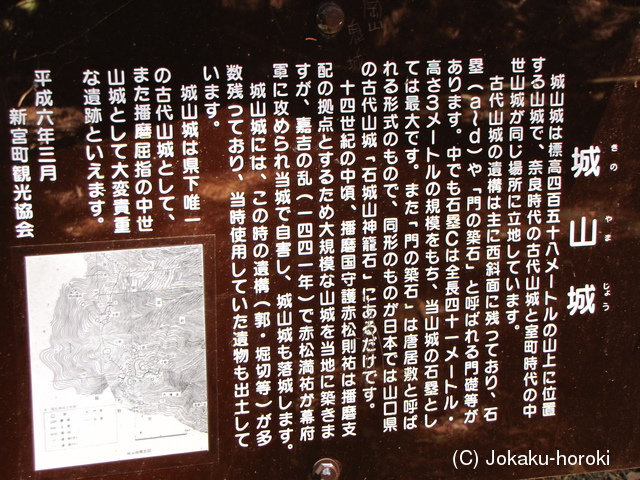 城山城
きの やま じょう
城山城は標高四百五十八メートルの山上に位置
する山城で、奈良時代の古代山城と室町時代の中
世山城が同じ場所に立地しています。
古代山城の遺構は主に西斜面に残っており、石
塁(a〜d)や「門の築石」と呼ばれる門礎等が
あります。中でも石塁Cは全長四十一メートル・
高さ3メートルの規模をもち、当山城の石塁とし
ては最大です。また「門の築石」は唐居敷と呼ば
れる形式のもので、同形のものが日本では山口県
の古代山城「石城山神籠石」にあるだけです。
十四世紀の中頃、播磨国守護赤松則祐は播磨支
配の拠点とするため大規模な山城を当地に築きま
すが、嘉吉の乱(一四四一年)で赤松満祐が幕府
軍に攻められ当城で自害し、城山城も落城します。
城山城には、この時の遺構(郭・堀切等)が多
数残っており、当時使用していた遺物も出土して
います。
城山城は県下唯一
の古代山城として、
また播磨屈指の中世
山城として大変貴重
な遺跡といえます。
平成六年三月
新宮町観光協会
(C) Jokaku-horoki